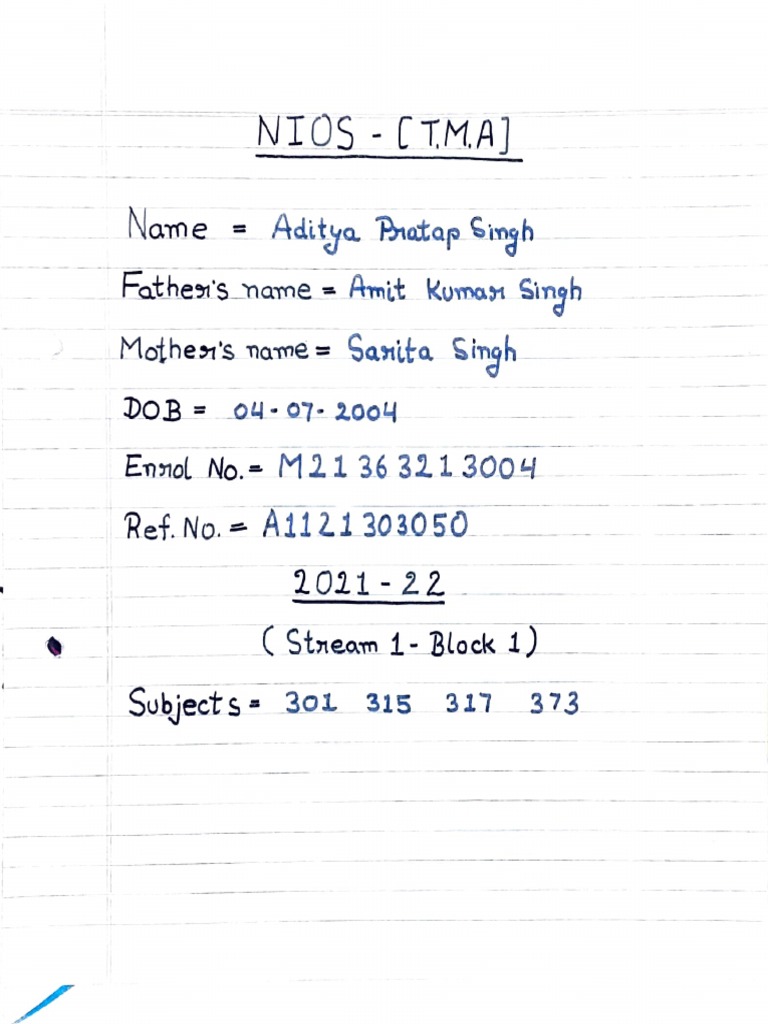 NIOS - [T.M.A]
Name = Aditya Pratap Singh
Father's name = Amit Kumar Singh
Mother's name = Sarita Singh
DOB = 04-07-2004
Enrol No. = M21363213004
Ref. No. = A1121303050
2021-22
(Stream 1 - Block 1)
Subjects = 301 315 317 373